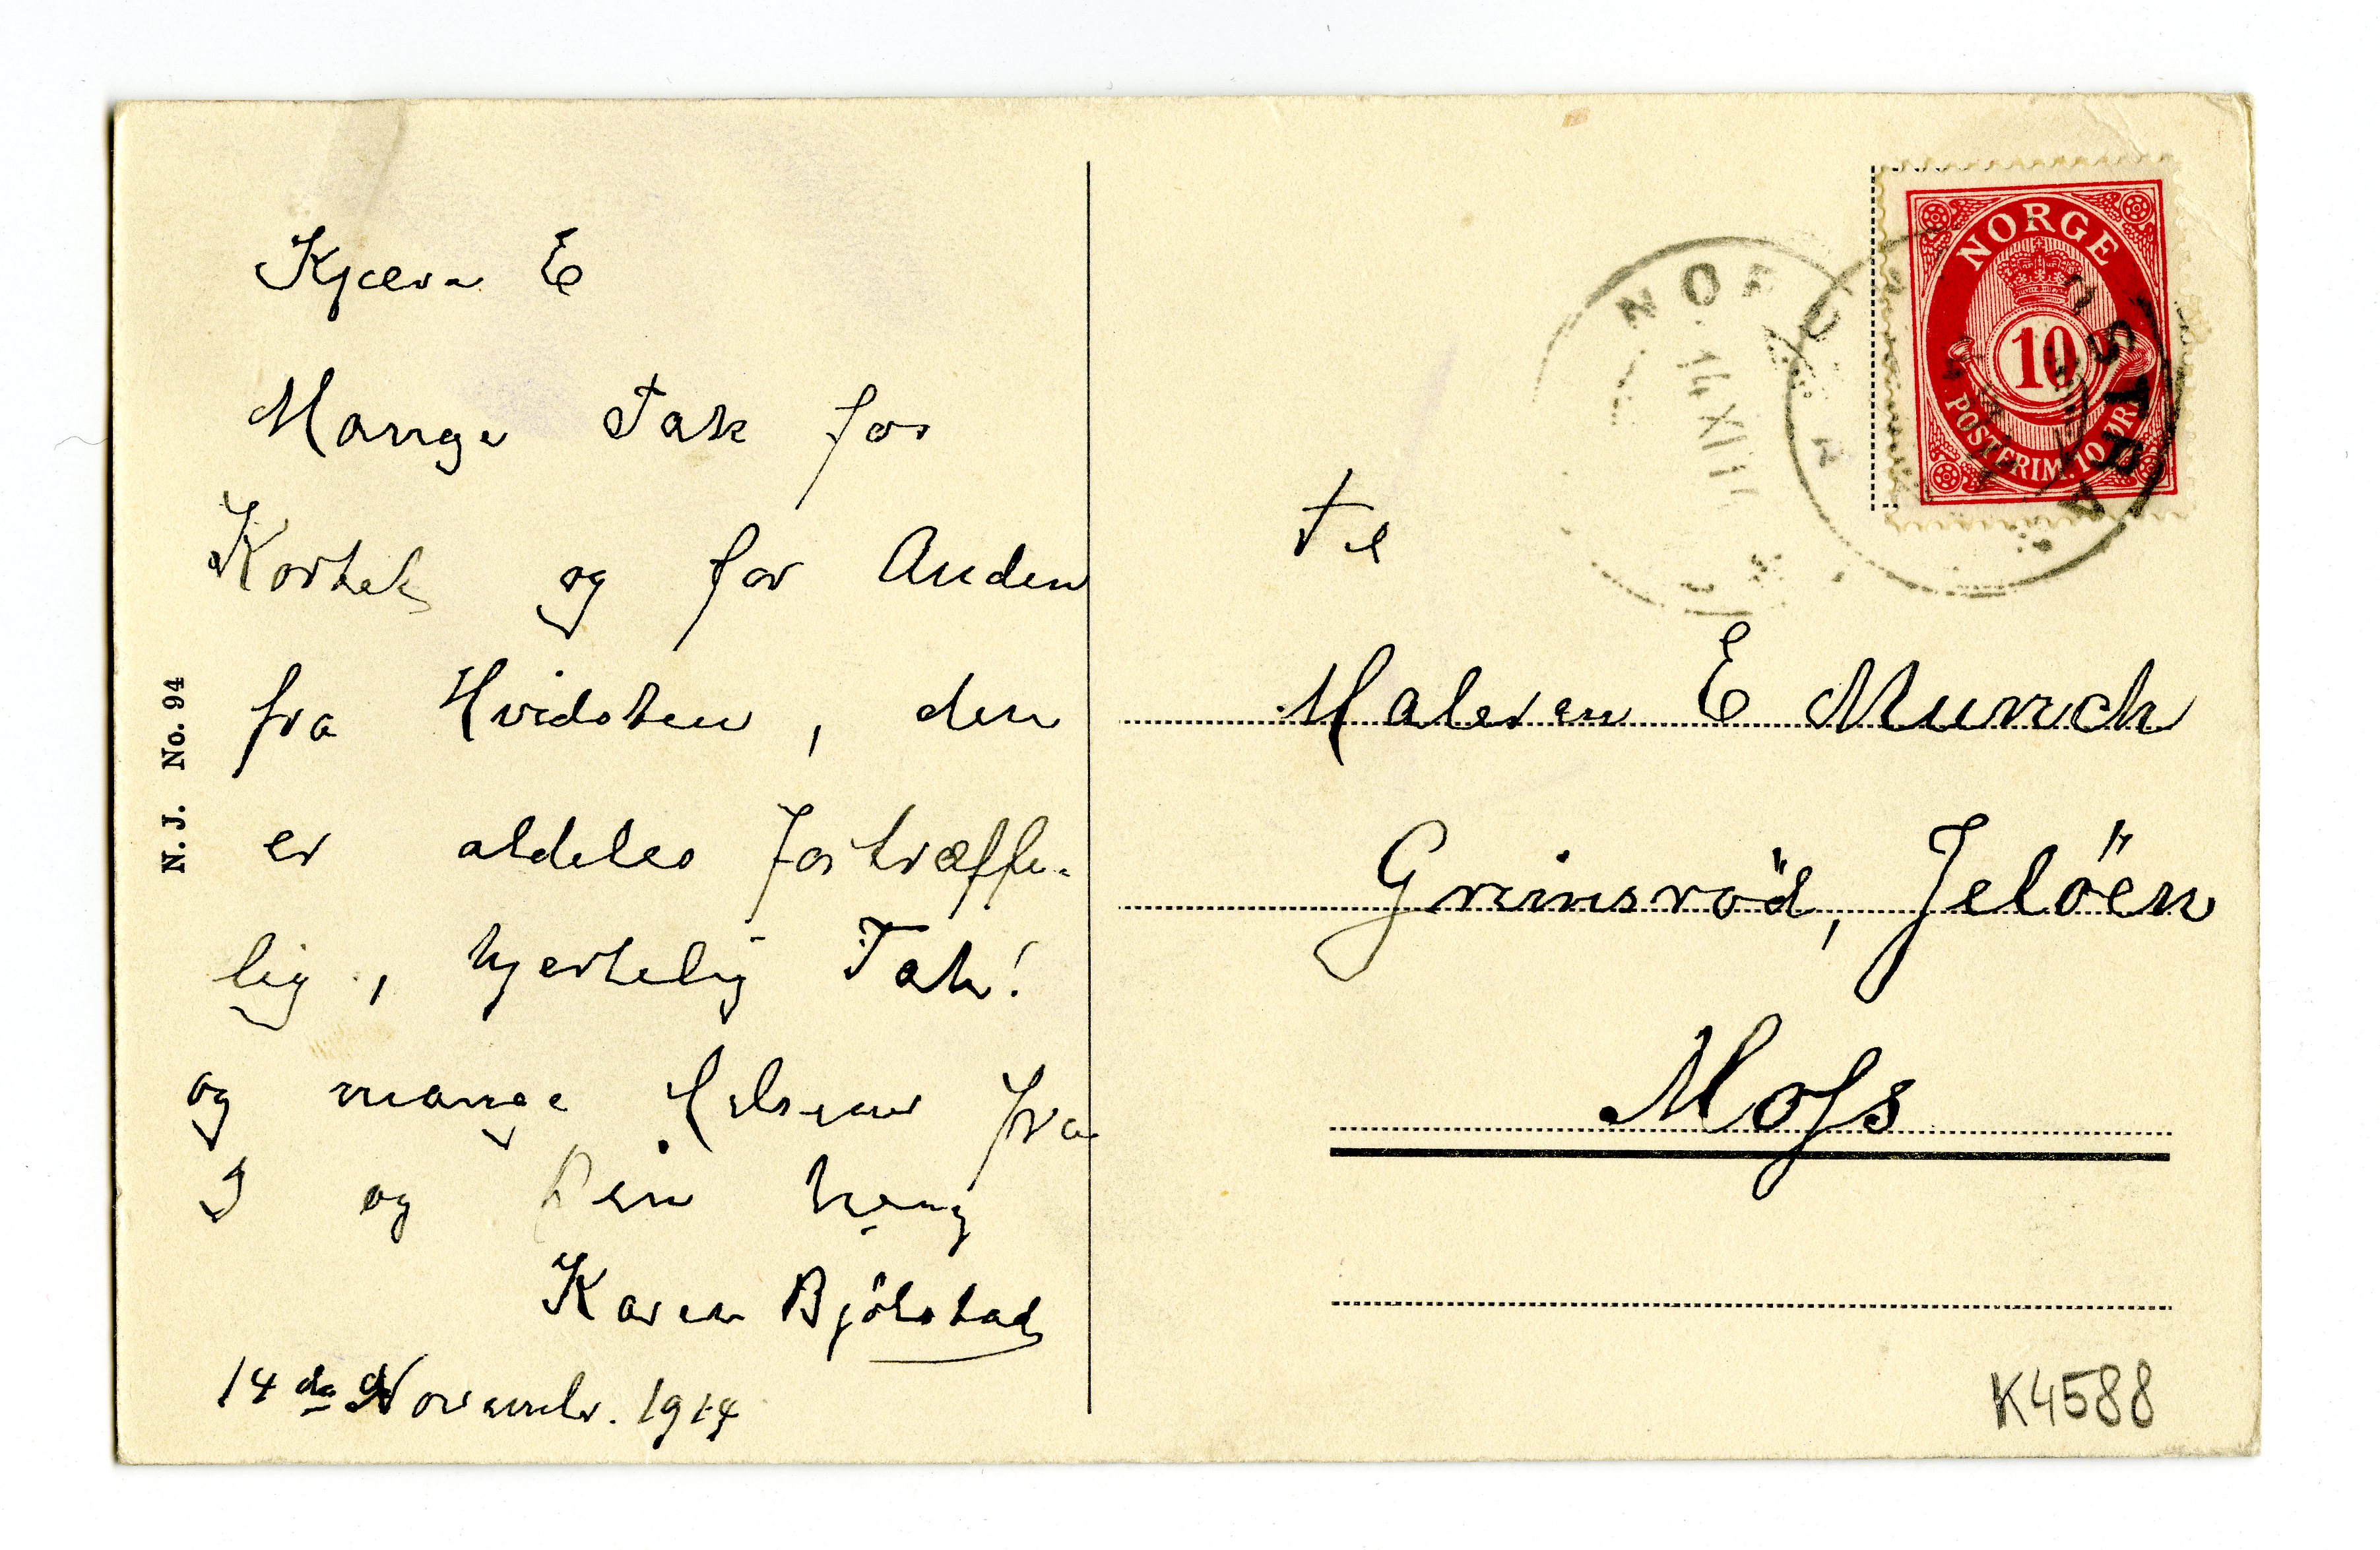 Kjære E
Mange Tak for
Kortet og for Anden
fra Hvidsten, den
er aldeles fortræffe-
lig, hjertelig Tak!
og mange Hilsener fra
I og Din heng
Karen Bjölstad
14de November. 1914
N. J. No. 94
NORGE
10
POSTFRIM. 10 ØRE
14 XI 1
Til
Maleren E Munch
Grimsröd, Jelöen
Moss
K4588